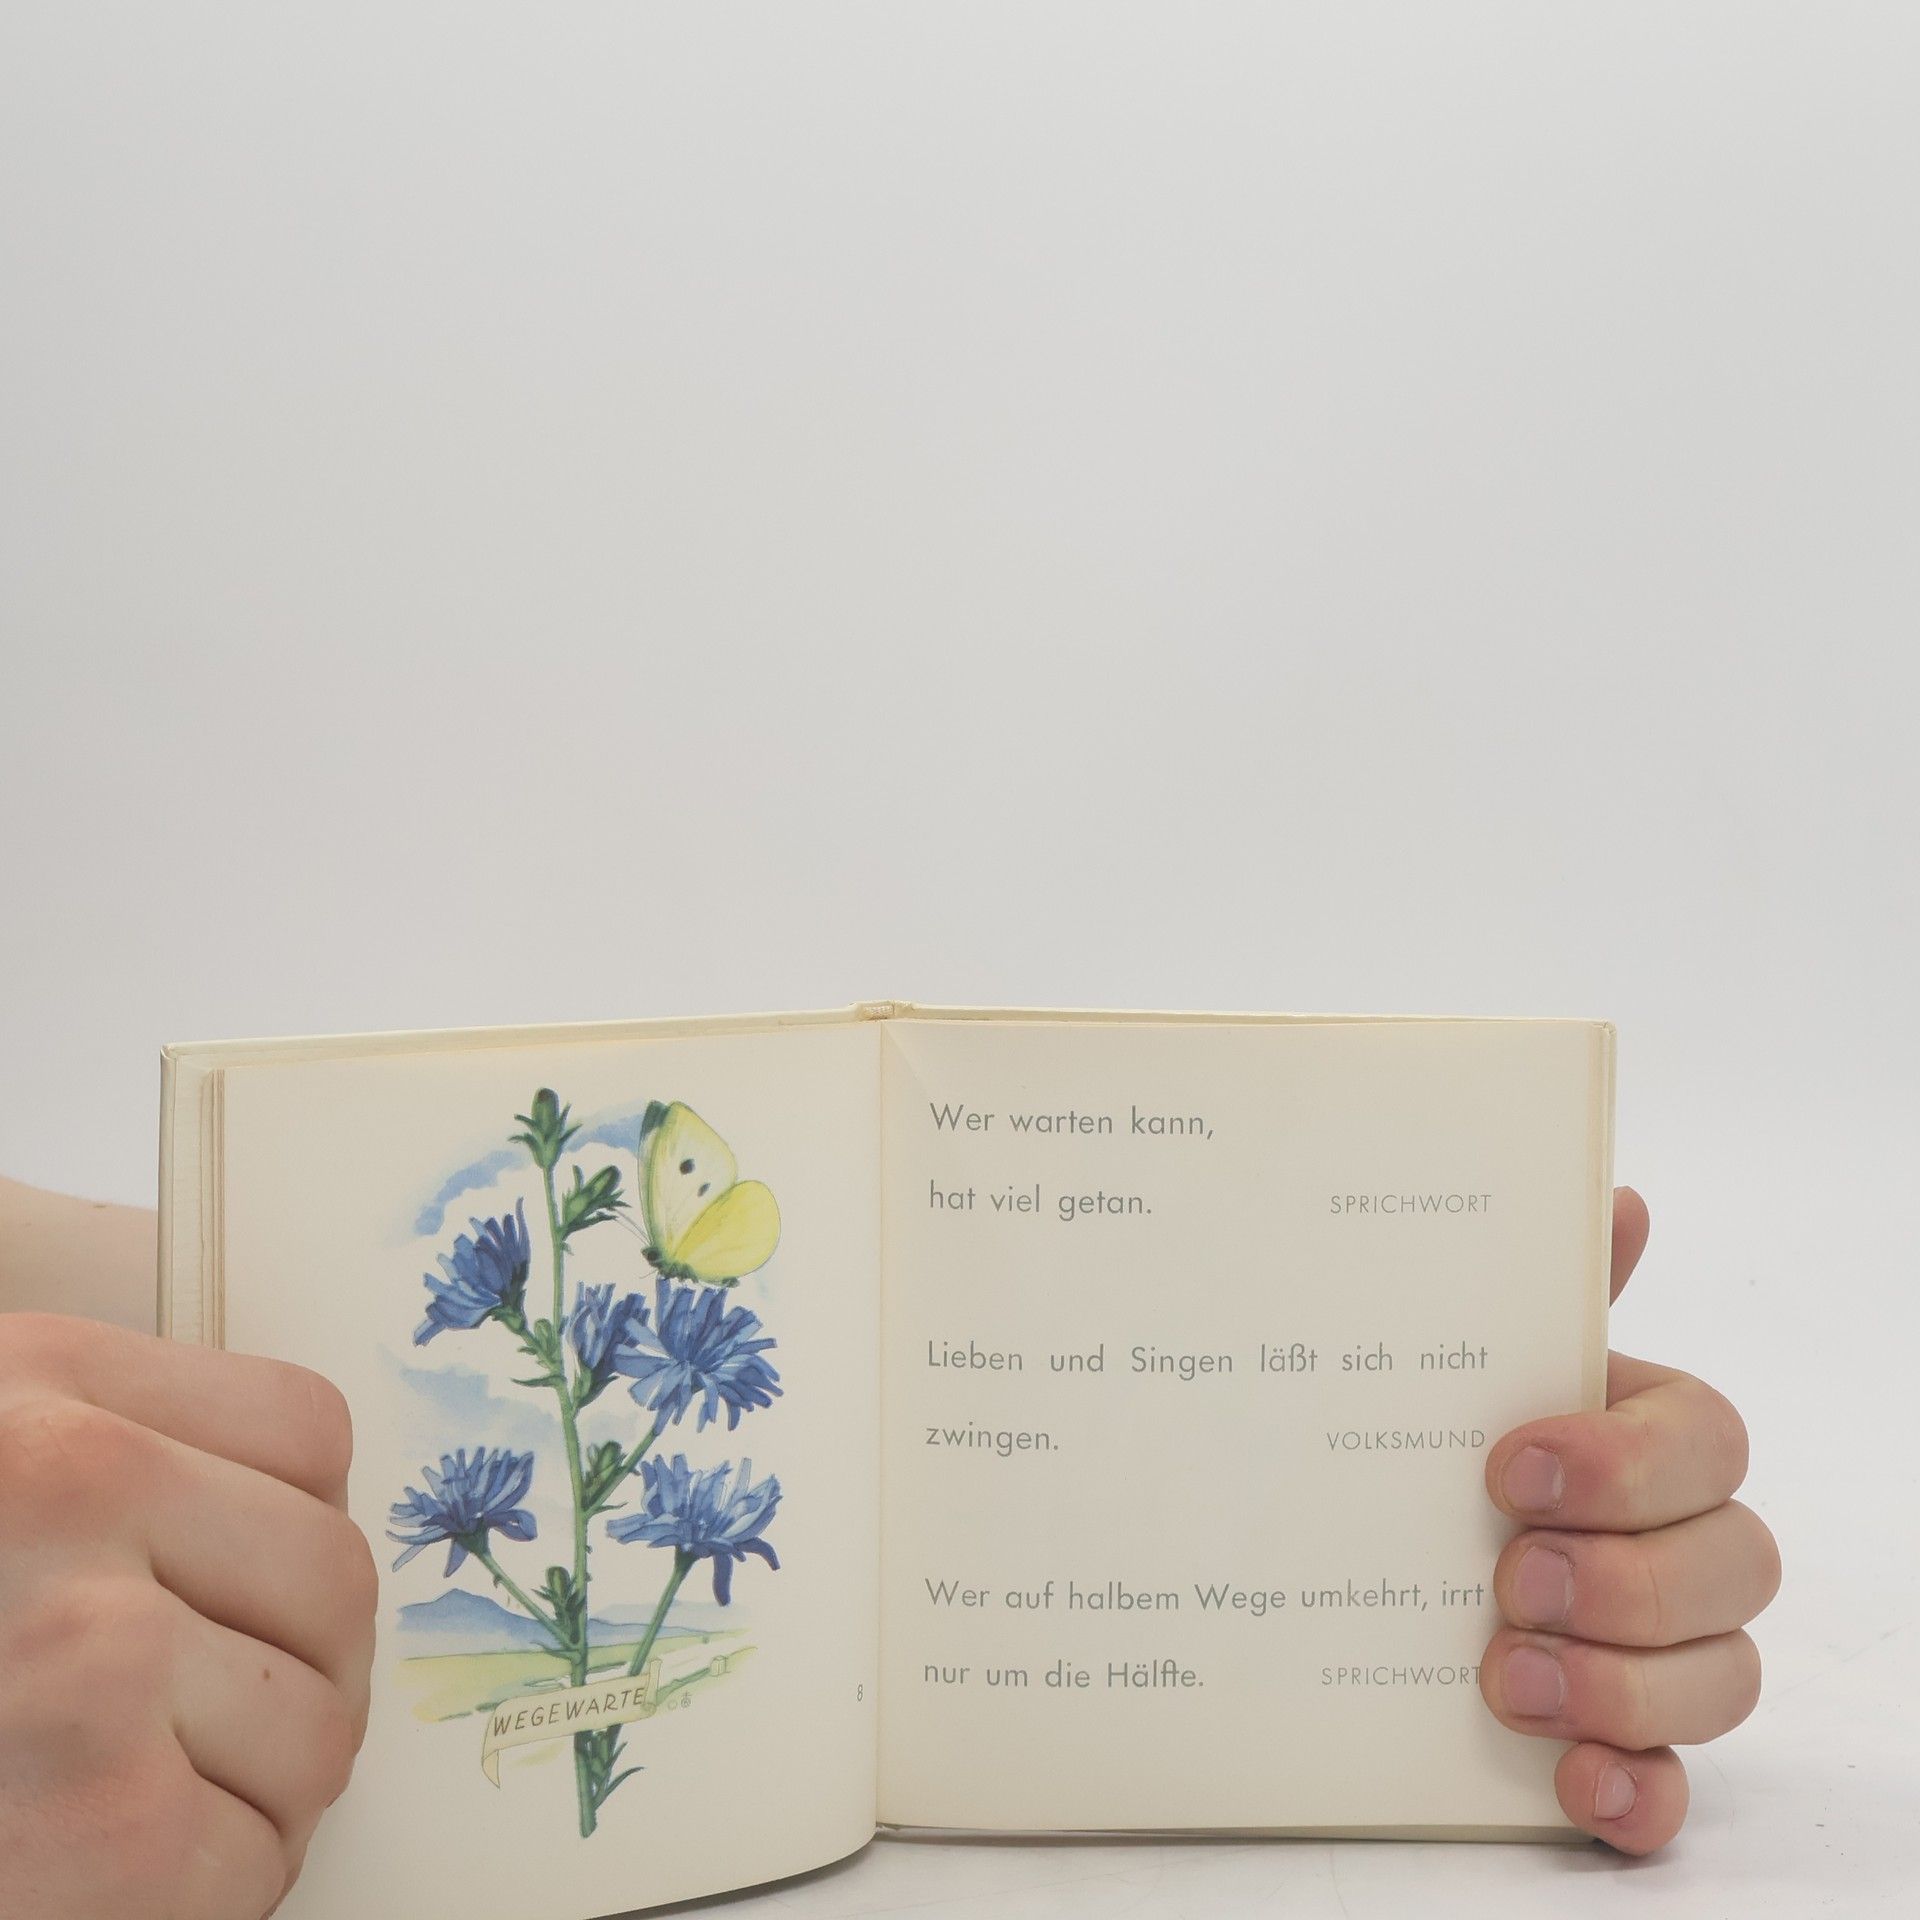 WEGEWARTE
8
Wer warten kann,
hat viel getan. SPRICHWORT
Lieben und Singen läßt sich nicht
zwingen. VOLKSMUND
Wer auf halbem Wege umkehrt, irrt
nur um die Hälfte. SPRICHWORT